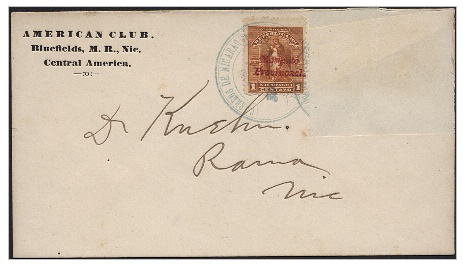 AMERICAN CLUB.
Bluefields, M. R., Nic.
Central America.
1
1
Dr Kuehn.
Rama
Nic